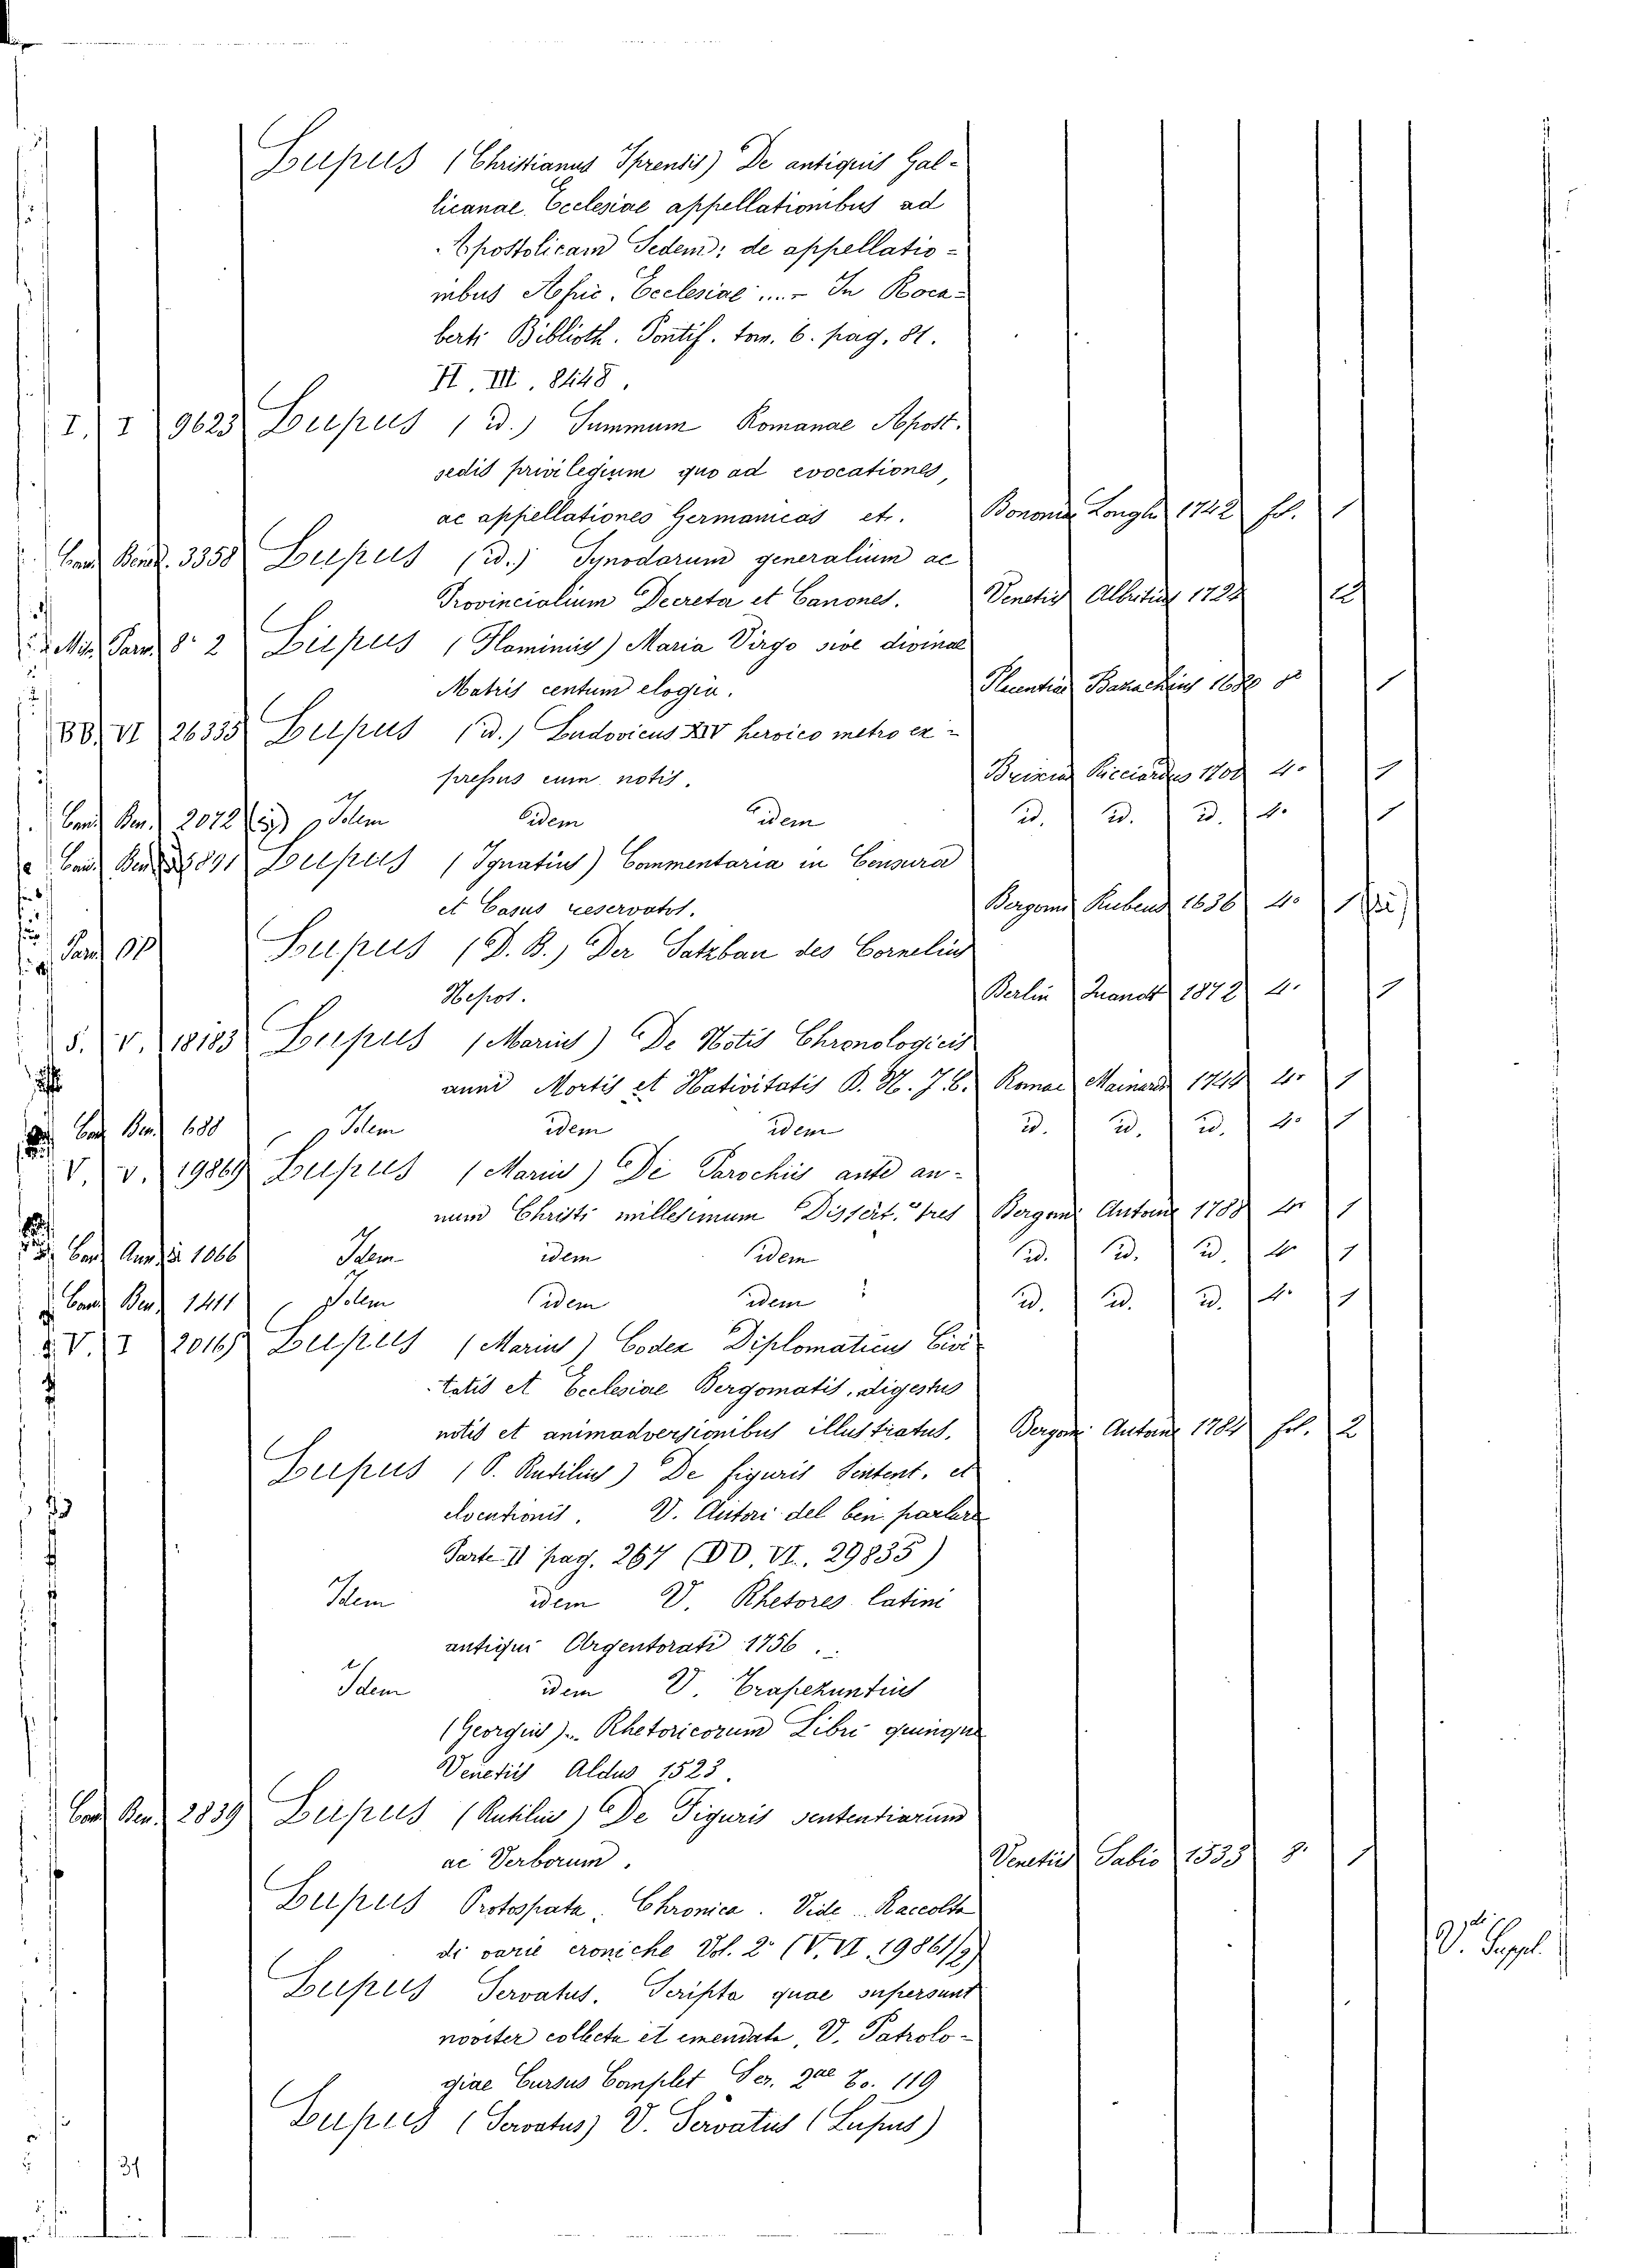 Lupus (Christianus Iprensis) De antiquis Gal-
licanae Ecclesiae appellationibus ad
Apostolicam Sedem; de appellatio-
nibus Afric. Ecclesiae ... - In Roca-
berti Biblioth. Pontif. tom. 6. pag. 81.
H. III. 8448.
I. I 9623 Lupus (id.) Summum Romanae Apost.
sedis privilegium quo ad evocationes,
ac appellationes Germanicas etc. Bononiae Longhi 1742 fol. 1
Cam. Bened. 3358 Lupus (id.) Synodarum generalium ac
Provincialium Decreta et Canones. Venetiis Albritius 1724 12
Misc. Parm. 8° 2 Lupus (Flaminius) Maria Virgo sive divinae
Matris centum elogia. Placentiae Bazachius 1680 8° 1
BB. VI 26335 Lupus (id.) Ludovicus XIV heroico metro ex-
pressus cum notis. Brixiae Ricciardus 1700 4° 1
Cam. Ben. 2072 Idem idem idem id. id. id. 4° 1
Cam. Ben. Lupus (Ignatius) Commentaria in Censuras
et Casus reservatos. Bergomi Rubeus 1636 4° 1
Lupus (D. B.) Der Satzbau des Cornelius
Nepos. Berlin 1872 4° 1
S. V. 18183 Lupus (Marius) De Notis Chronologicis
anni Mortis et Nativitatis D. N. J. C. Romae Mainardi 1744 4° 1
Cam. Ben. 688 Idem idem idem id. id. id. 4° 1
V. V. 19869 Lupus (Marius) De Parochiis ante an-
num Christi millesimum Dissert. tres Bergomi Antoine 1788 4° 1
1066 Idem idem idem id. id. id. 4° 1
Cam. Ben. 1411 Idem idem idem id. id. id. 4° 1
V. I 20165 Lupus (Marius) Codex Diplomaticus Civi-
tatis et Ecclesiae Bergomatis, digestus
notis et animadversionibus illustratus. Bergomi Antoine 1784 fol. 2
Lupus (P. Rutilius) De figuris Sentent. et
elocutionis. V. Autori del ben parlare
Parte II pag. 267 (DD. VI. 29835)
Idem idem V. Rhetores latini
antiqui Argentorati 1756.
Idem idem V. Trapezuntius
(Georgius) .. Rhetoricorum Libri quinque
Venetiis Aldus 1523.
Cam. Ben. 2839 Lupus (Rutilius) De Figuris sententiarum
ac Verborum. Venetiis Sabio 1533 8° 1
Lupus Protospata. Chronica. Vide Raccolta
di varie croniche Vol. 2° (V. VI. 19861/2) V. Suppl.
Lupus Servatus. Scripta quae supersunt
noviter collecta et emendata, V. Patrolo-
giae Cursus Complet Ser. 2ae To. 119
Lupus (Servatus) V. Servatus (Lupus)
31